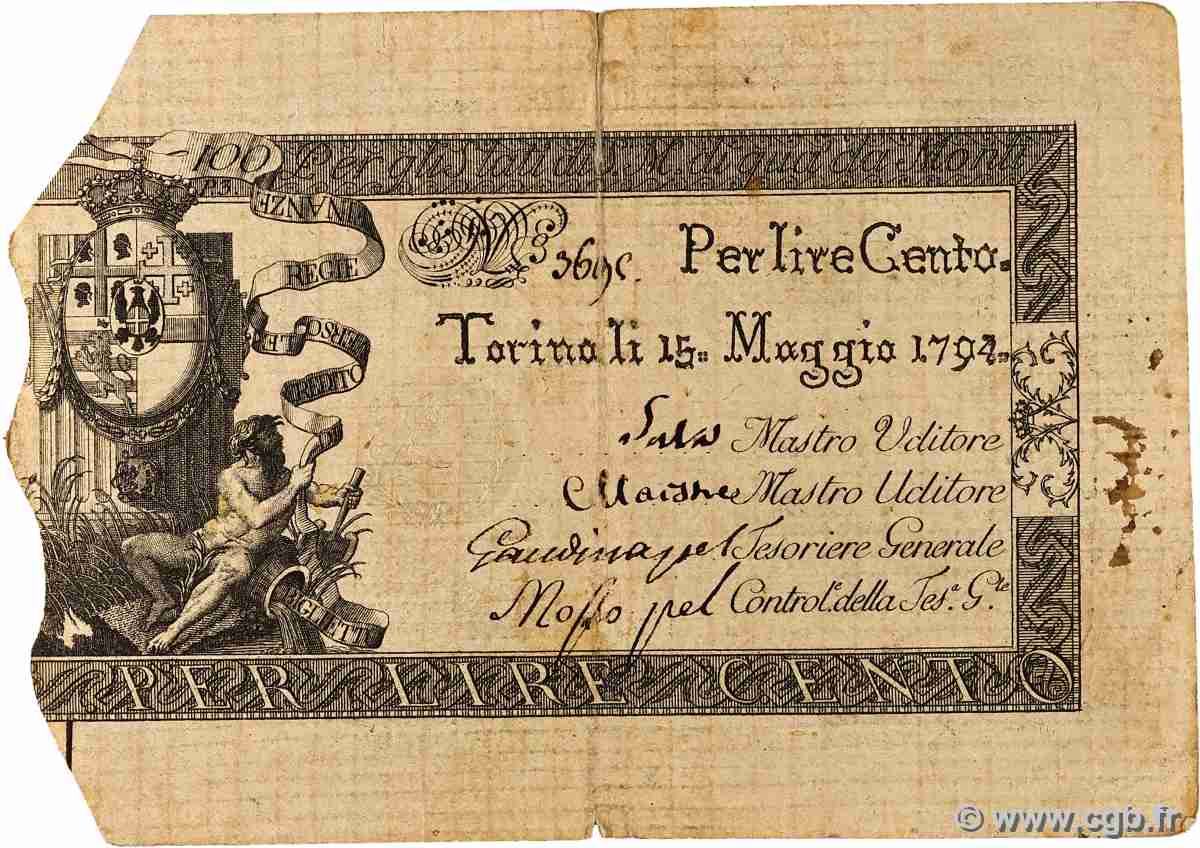 100 Per gli Stati di S. M. di qua da Monti
FINANZE
REGIE
VERSO LE
CREDITO
BIGLIETTI
Per lire Cento.
Torino li 15. Maggio 1794.
Mastro Uditore
Mastro Uditore
Tesoriere Generale
Mosso pel Control.e della Tes.a G.le
PER LIRE CENTO
© www.cgb.fr